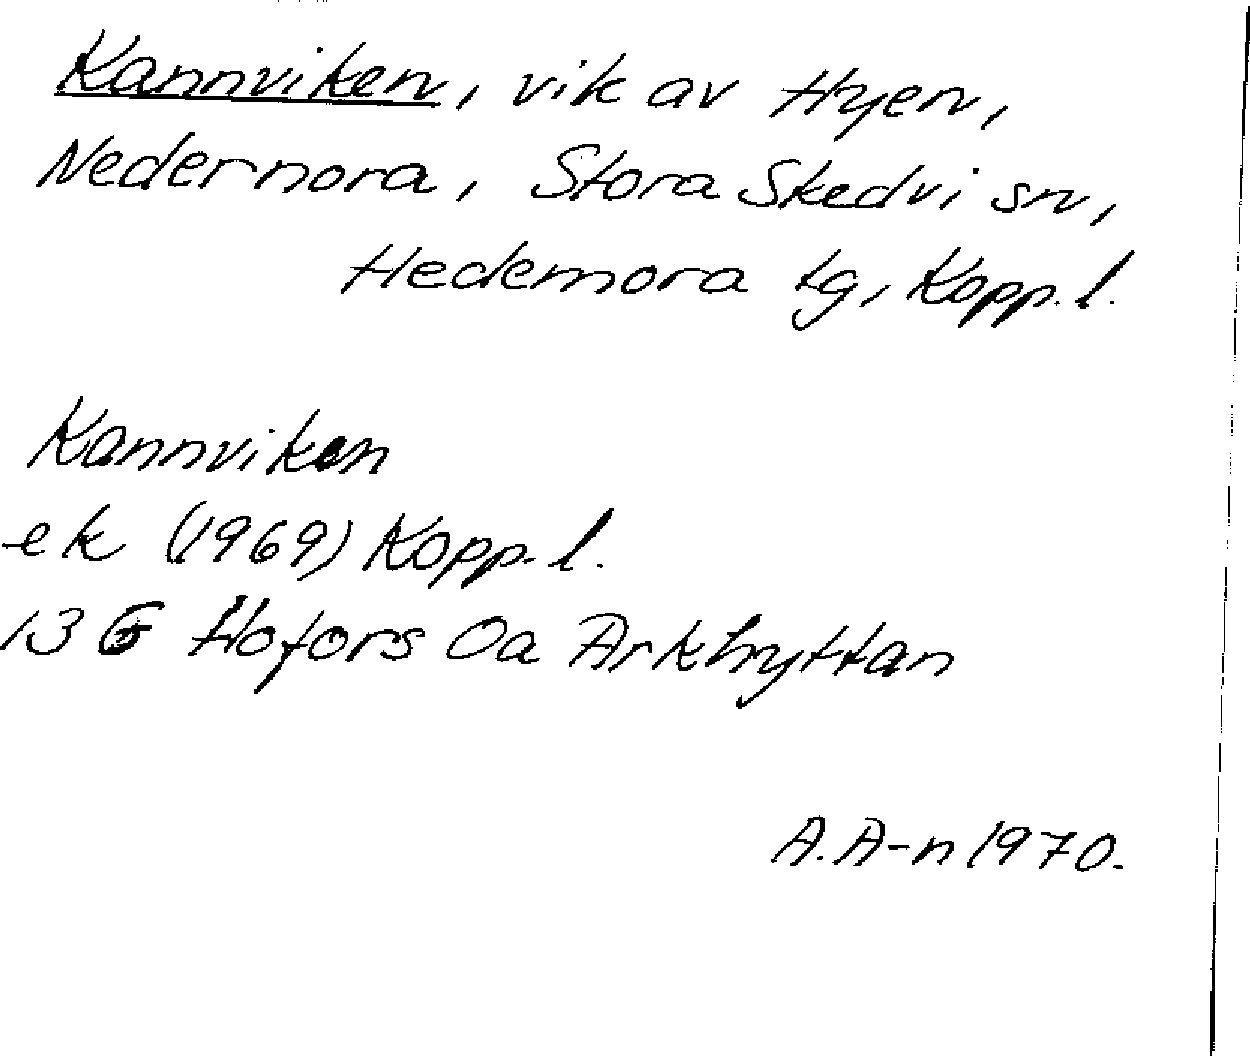 Kannviken, vik av Hyen,
Nedernora, Stora Skedvi sn,
Hedemora tg, Kopp. l.
Kannviken
ek (1969) Kopp. l.
13 G Hofors Oa Arkhyttan
A.A-n 1970.